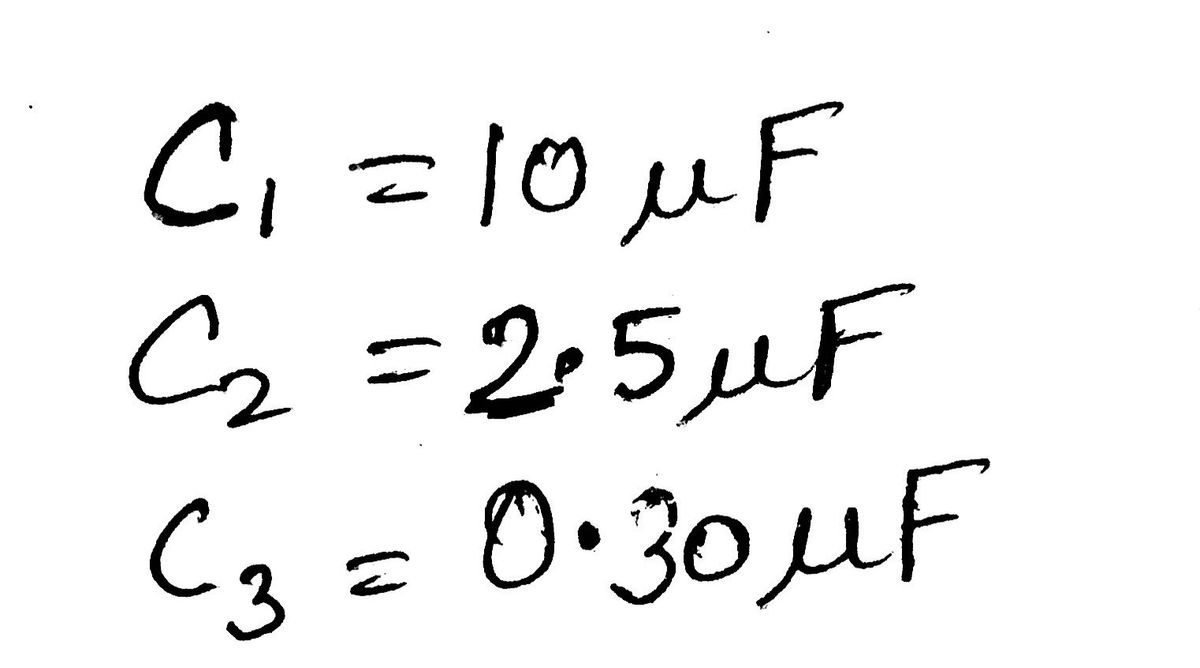 C₁ = 10 μF
C₂ = 2.5 μF
C₃ = 0.30 μF